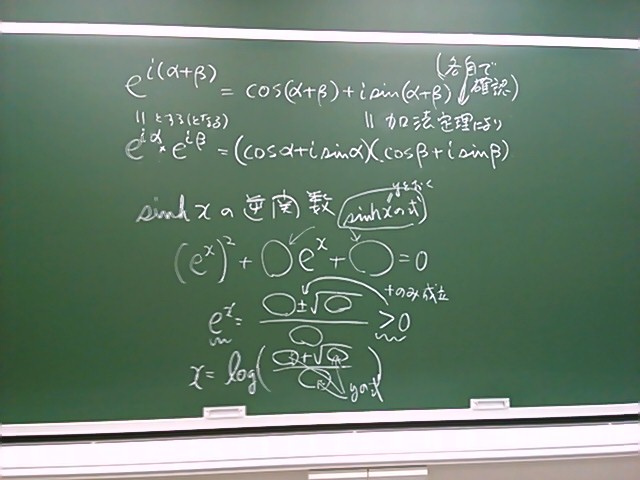 e^{i(α+β)} = cos(α+β) + i sin(α+β) (各自で確認)
|| とする(となる) || 加法定理により
e^{iα} × e^{iβ} = (cosα + i sinα)(cosβ + i sinβ)
sinh x の逆関数 sinh xの式 yとおく
(e^x)² + ○e^x + ○ = 0
e^x = (○ ± √○) / ○ > 0 +のみ成立
x = log((○ + √○) / ○) yの式